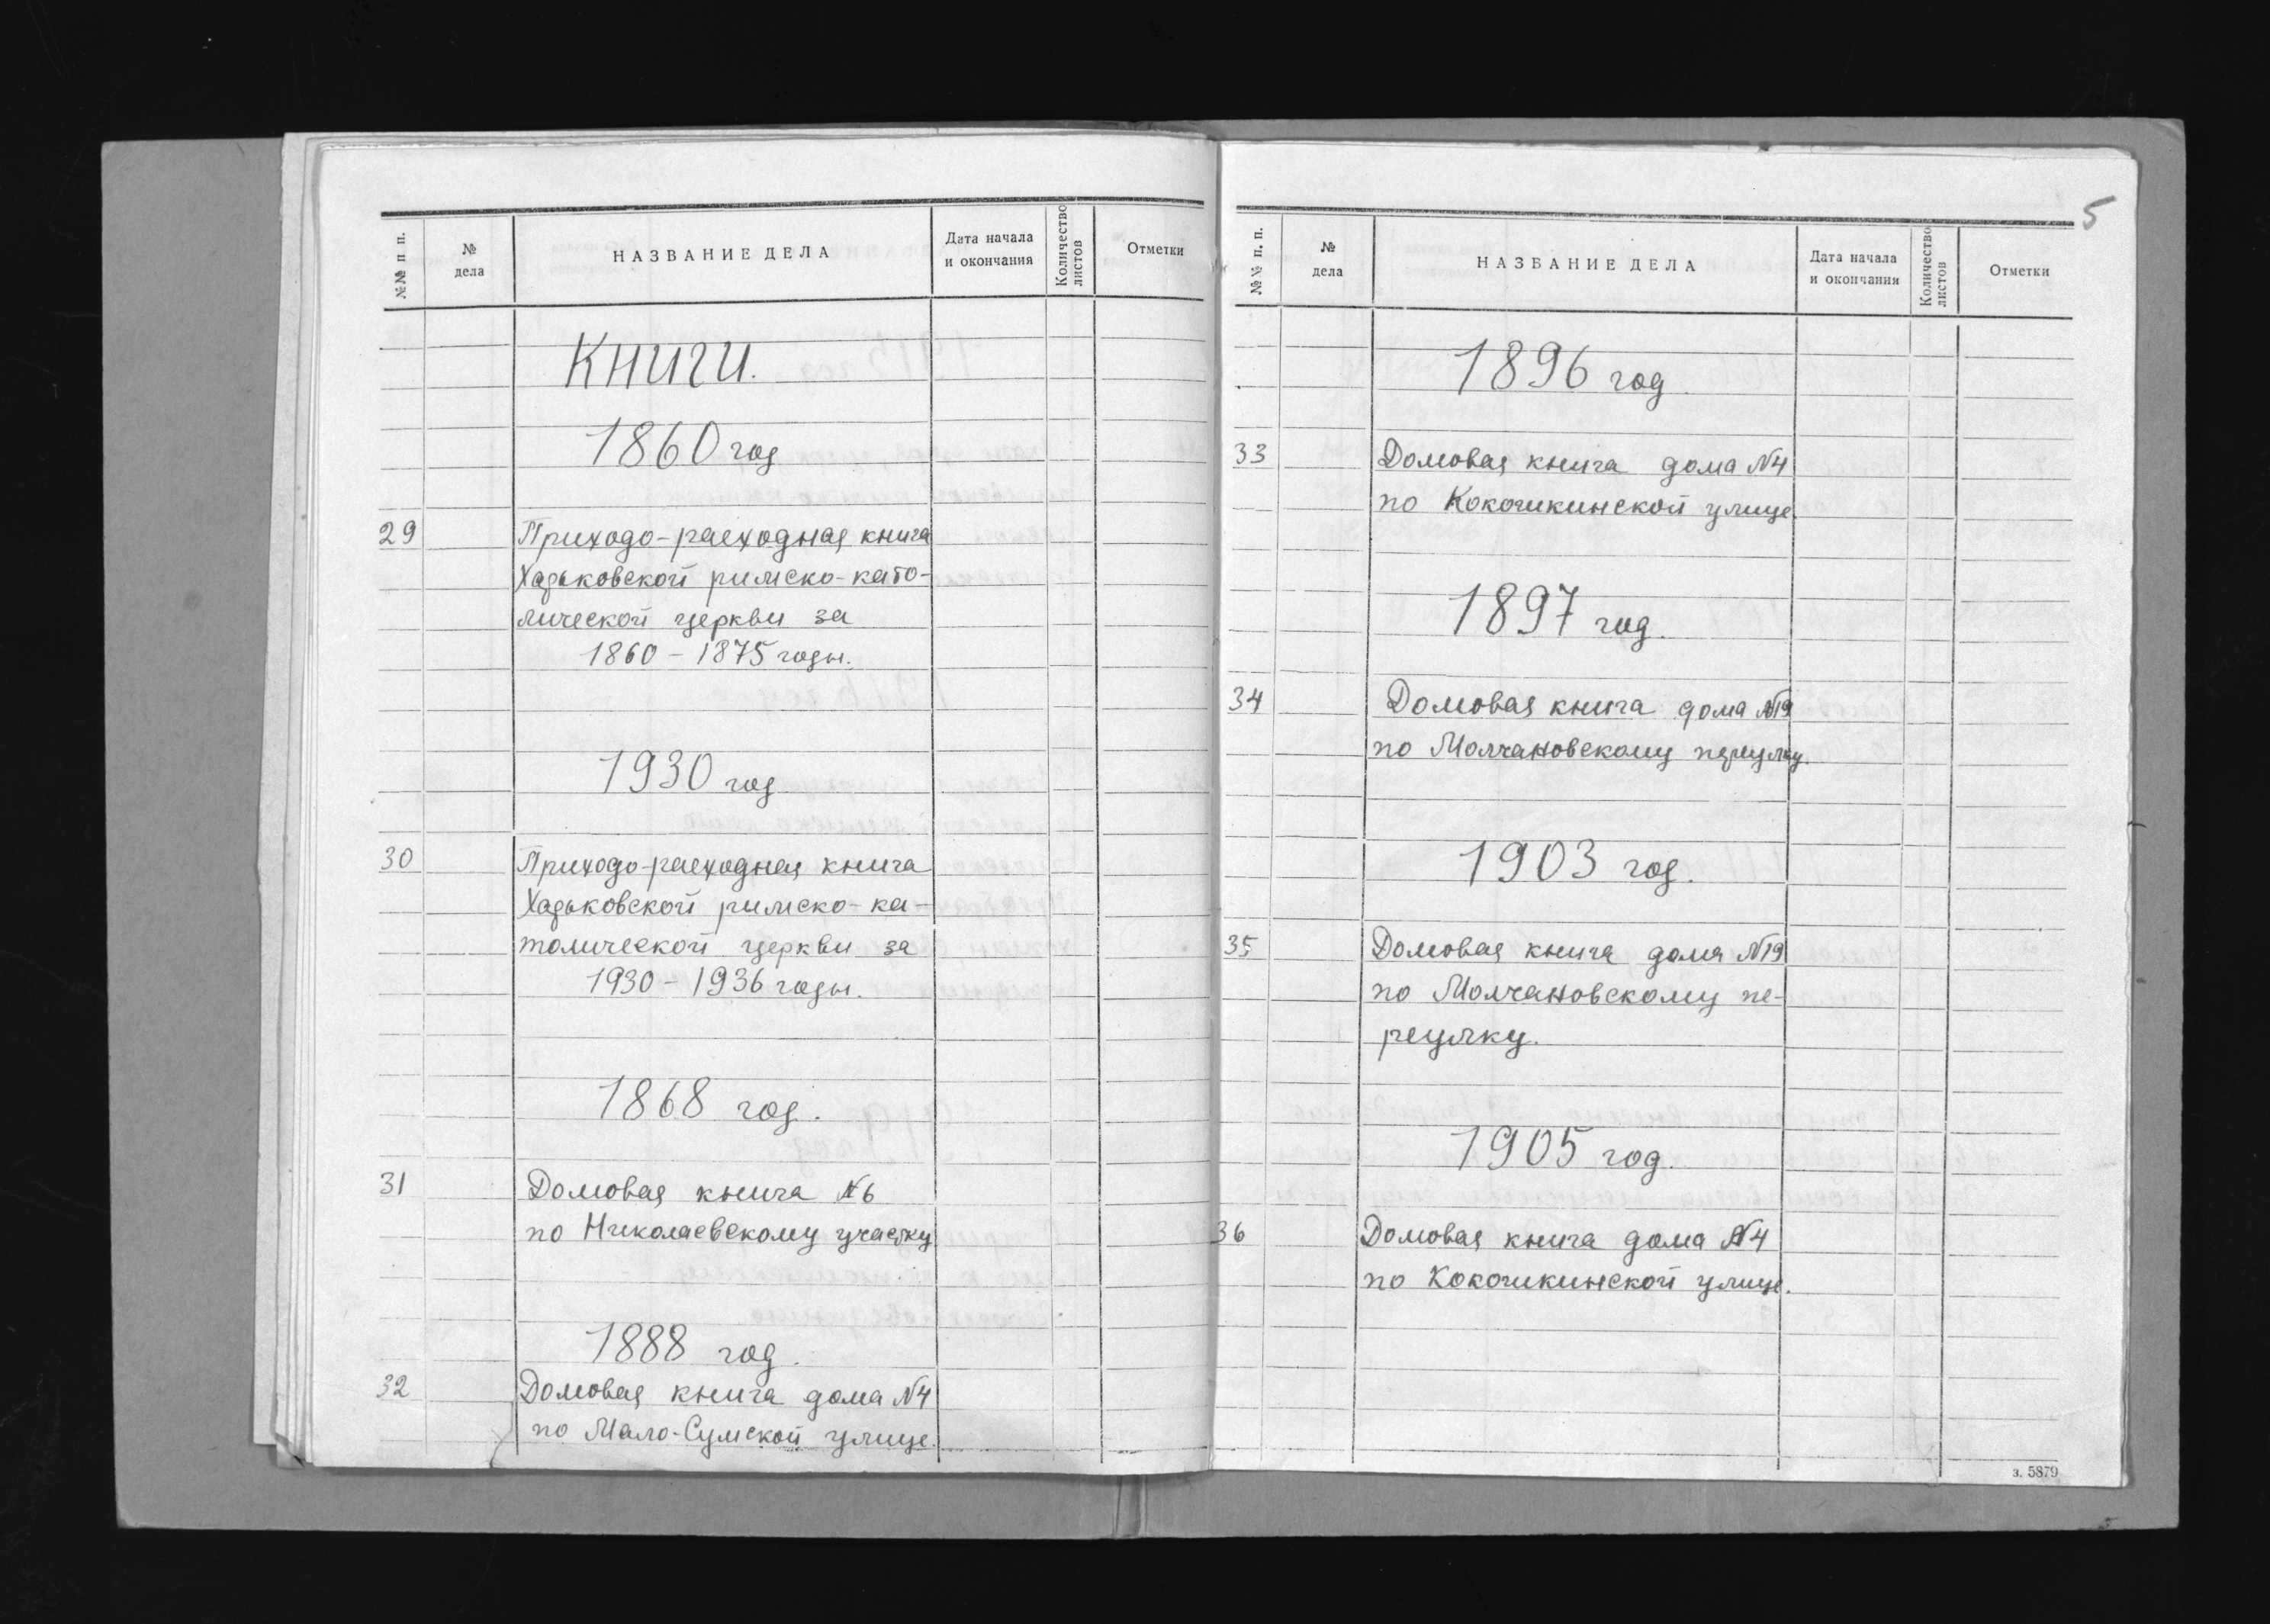 №№ п п.
№
дела
НАЗВАНИЕ ДЕЛА
Дата начала
и окончания
Количество
листов
Отметки
Книги.
1860 год
29
Приходо-расходная книга
Харьковской римско-като-
лической церкви за
1860 - 1875 годы.
1930 год
30
Приходо-расходная книга
Харьковской римско-ка-
толической церкви за
1930 - 1936 годы.
1868 год.
31
Домовая книга №6
по Николаевскому участку
1888 год.
32
Домовая книга дома №4
по Мало-Сумской улице.
5
№№ п. п.
№
дела
НАЗВАНИЕ ДЕЛА
Дата начала
и окончания
Количество
листов
Отметки
1896 год
33
Домовая книга дома №4
по Кокошкинской улице.
1897 год.
34
Домовая книга дома №19
по Молчановскому переулку.
1903 год.
35
Домовая книга дома №19
по Молчановскому пе-
реулку.
1905 год.
36
Домовая книга дома №4
по Кокошкинской улице.
з. 5879